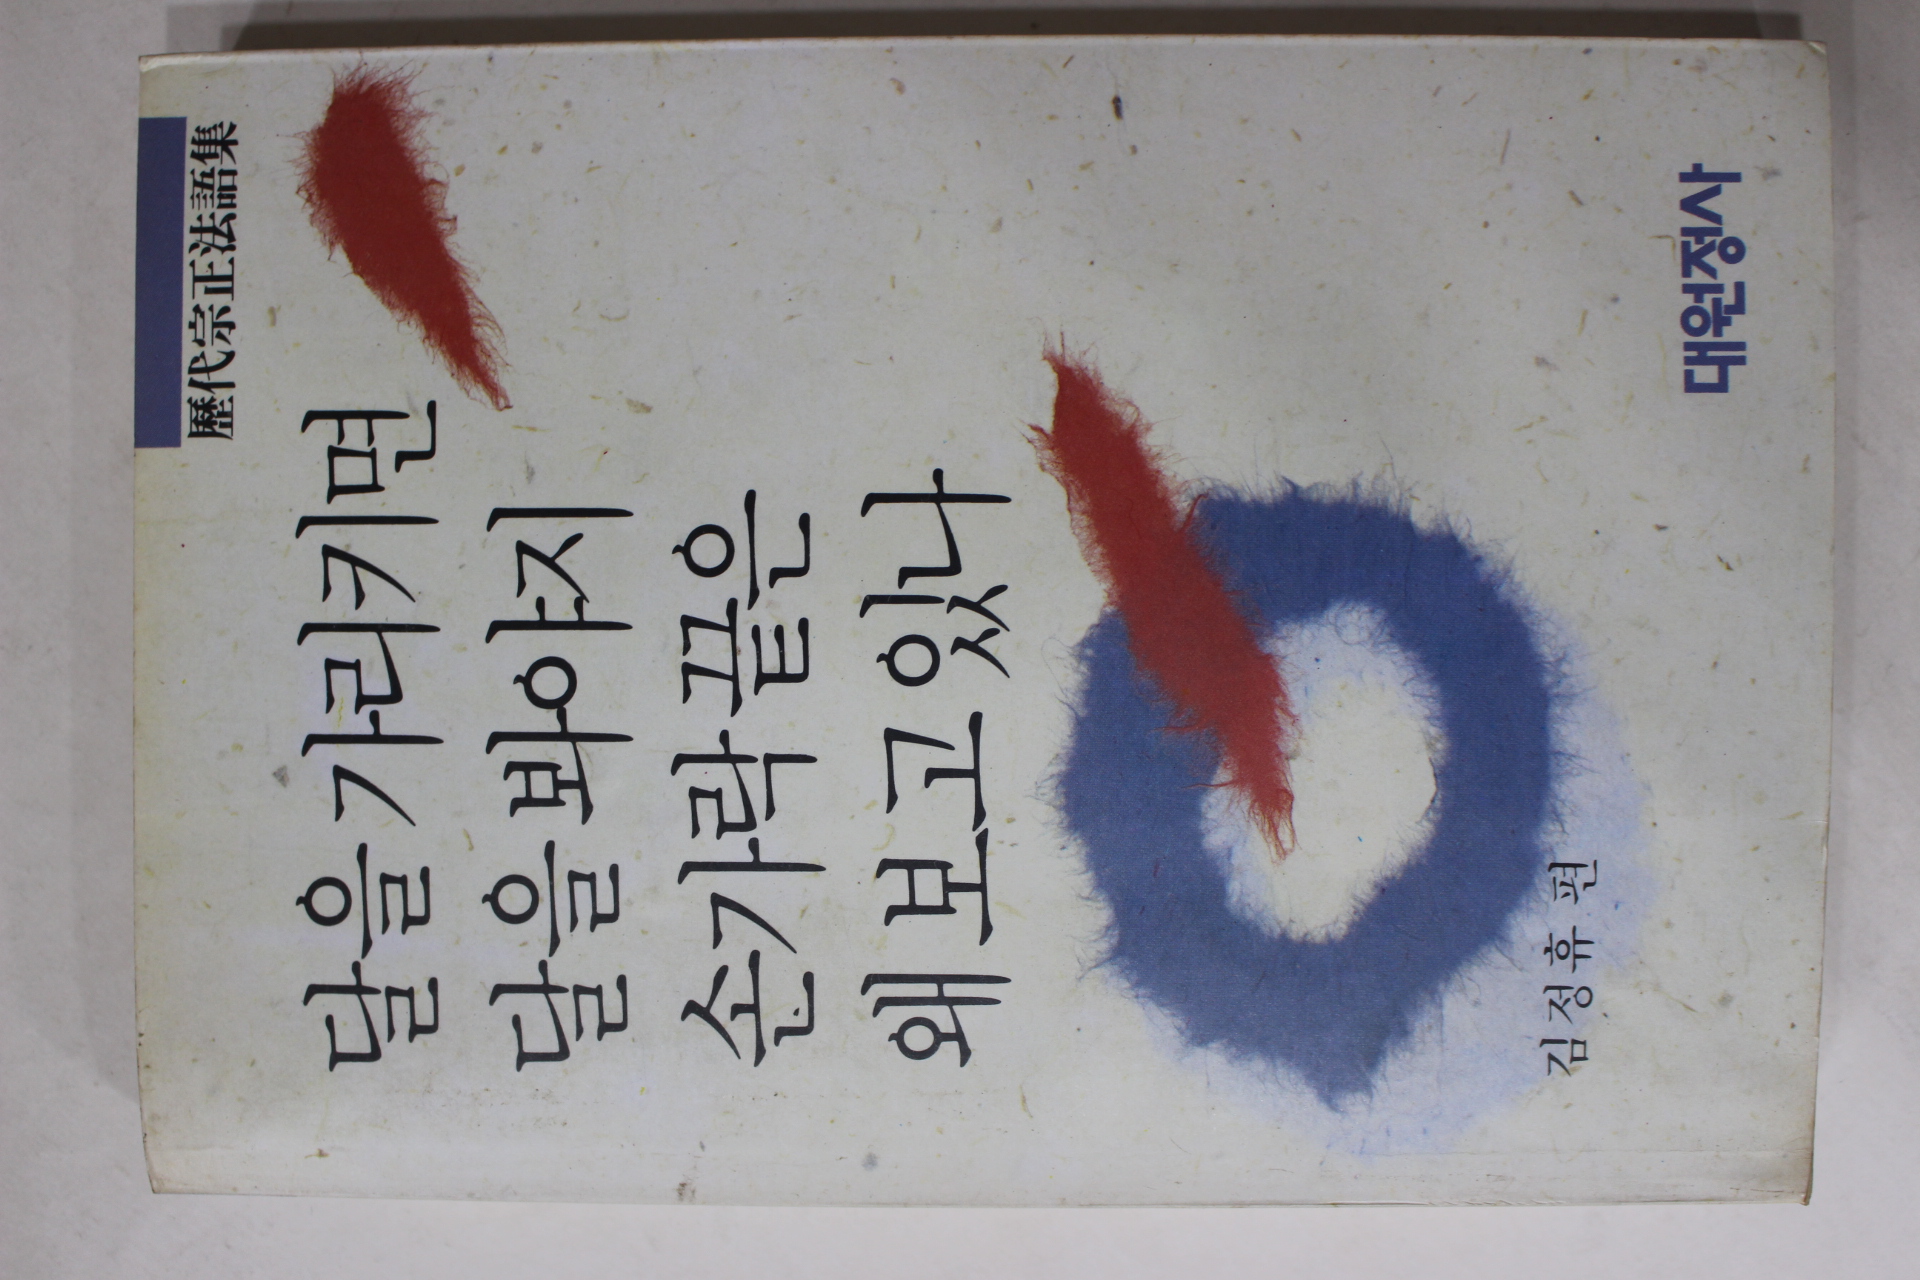 歷代宗正法語集
달을 가리키면
달을 봐야지
손가락 끝은
왜 보고 있나
김정휴 편
대원정사